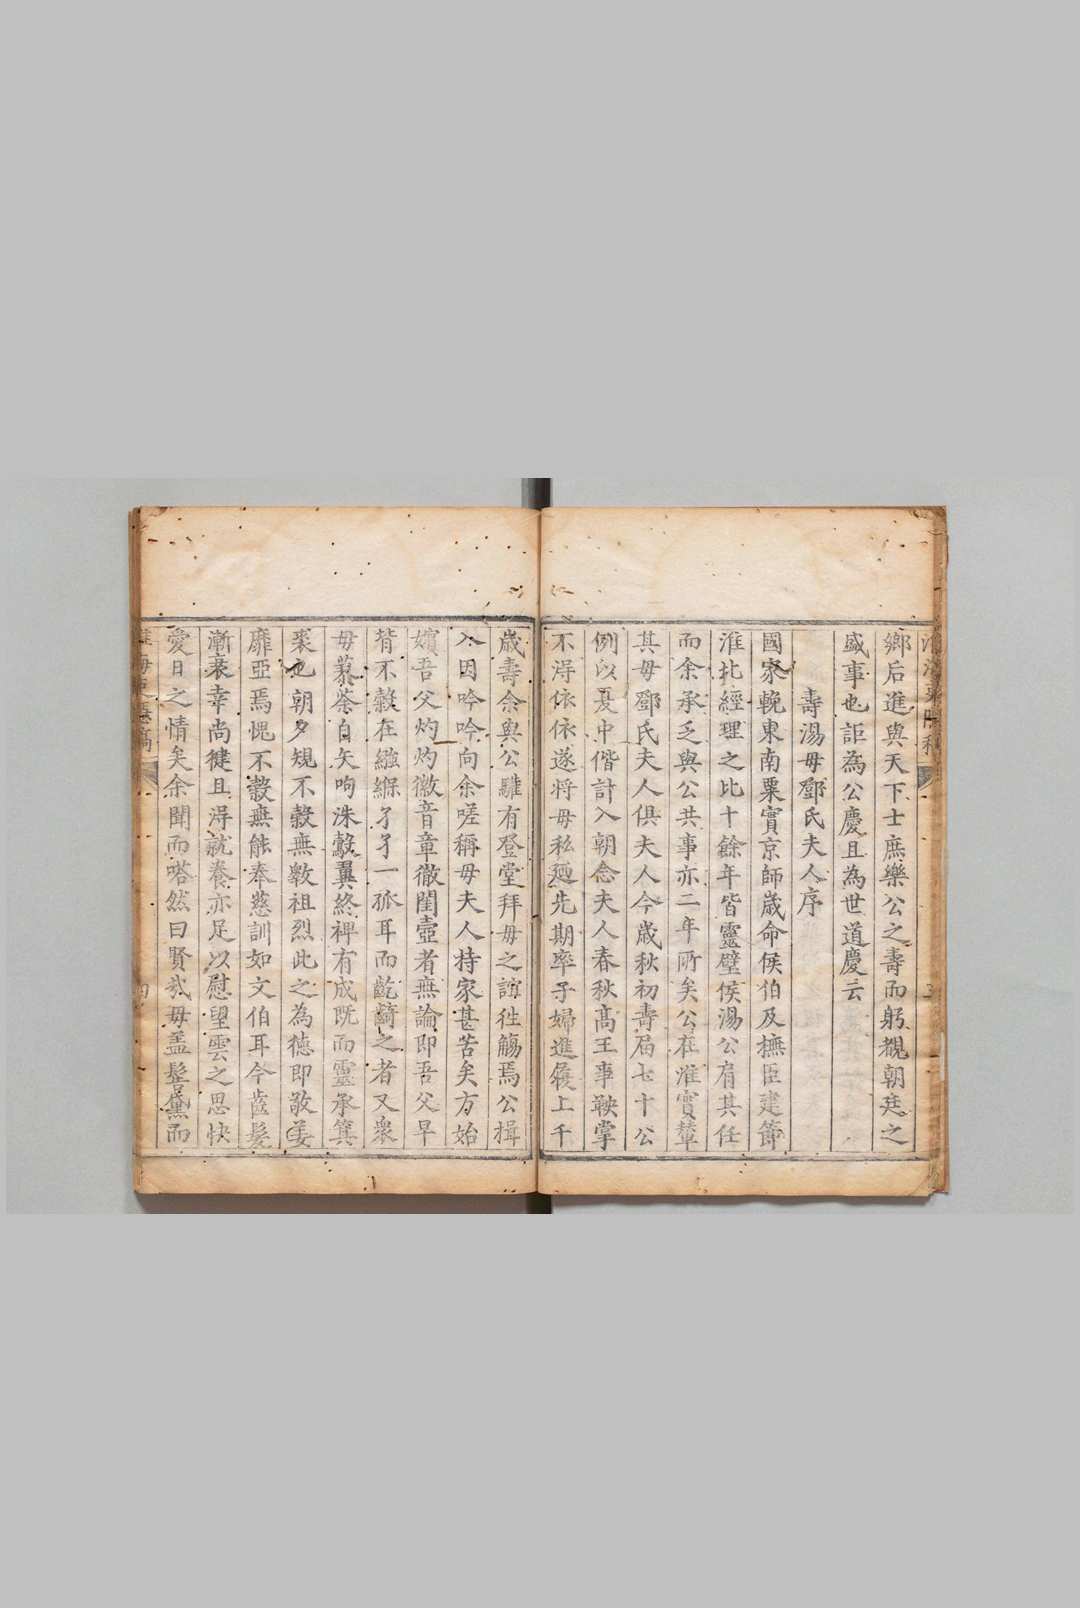 鄉后進與天下士庶樂公之壽而躬覩朝廷之
盛事也詎為公慶且為世道慶云
壽湯母鄧氏夫人序
國家輓東南粟實京師歲命侯伯及撫臣建節
淮北經理之比十餘年皆靈璧侯湯公肩其任
而余承乏與公共事亦二年所矣公在淮實輦
其母鄧氏夫人俱夫人今歲秋初壽屆七十公
例以夏中偕計入朝念夫人春秋高王事鞅掌
不淂依依遂將母私廼先期率子婦進餕上千
歲壽余與公雝有登堂拜母之誼徃觴焉公揖
入因吟吟向余嗟稱母夫人持家甚苦矣方始
嬪吾父灼灼徽音章徹閨壼者無論即吾父早
背不穀在繈緥孑孑一孤耳而齕齮之者又衆
母蓼荼自矢呴洙鷇翼終裨有成既而靈承箕
裘也朝夕䂓不穀無斁祖烈此之為德即敬姜
靡亞焉愧不穀無能奉慈訓如文伯耳今齒髮
漸衰幸尚健且淂就養亦足以慰望雲之思快
愛日之情矣余聞而嗒然曰賢哉母盖髽黛而